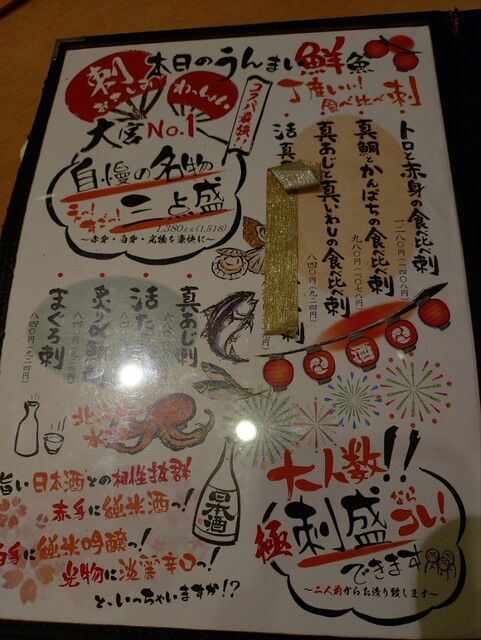 本日のうんまい鮮魚
刺
わっしょい
コスパ最強!!
大宮No.1
自慢の名物
三点盛
1,380円(1,518)
〜赤身・白身・光物を豪快に〜
丁度いい!
食べ比べ刺
トロと赤身の食べ比べ刺
一二八〇円(一四〇八円)
真鯛とかんぱちの食べ比べ刺
九八〇円(一〇七八円)
真あじと真いわしの食べ比べ刺
八四〇円(九二四円)
活真
真あじ刺
活た
炙り〆鯖刺
まぐろ刺
八四〇円(九二四円)
酒
大人数!!
ならコレ!
極刺盛
できます
〜二人前からお造り致します〜
旨い日本酒との相性抜群
赤身に純米酒っ!
白身に純米吟醸っ!
光物に淡麗辛口っ!
と、いっちゃいますか!?
日本酒